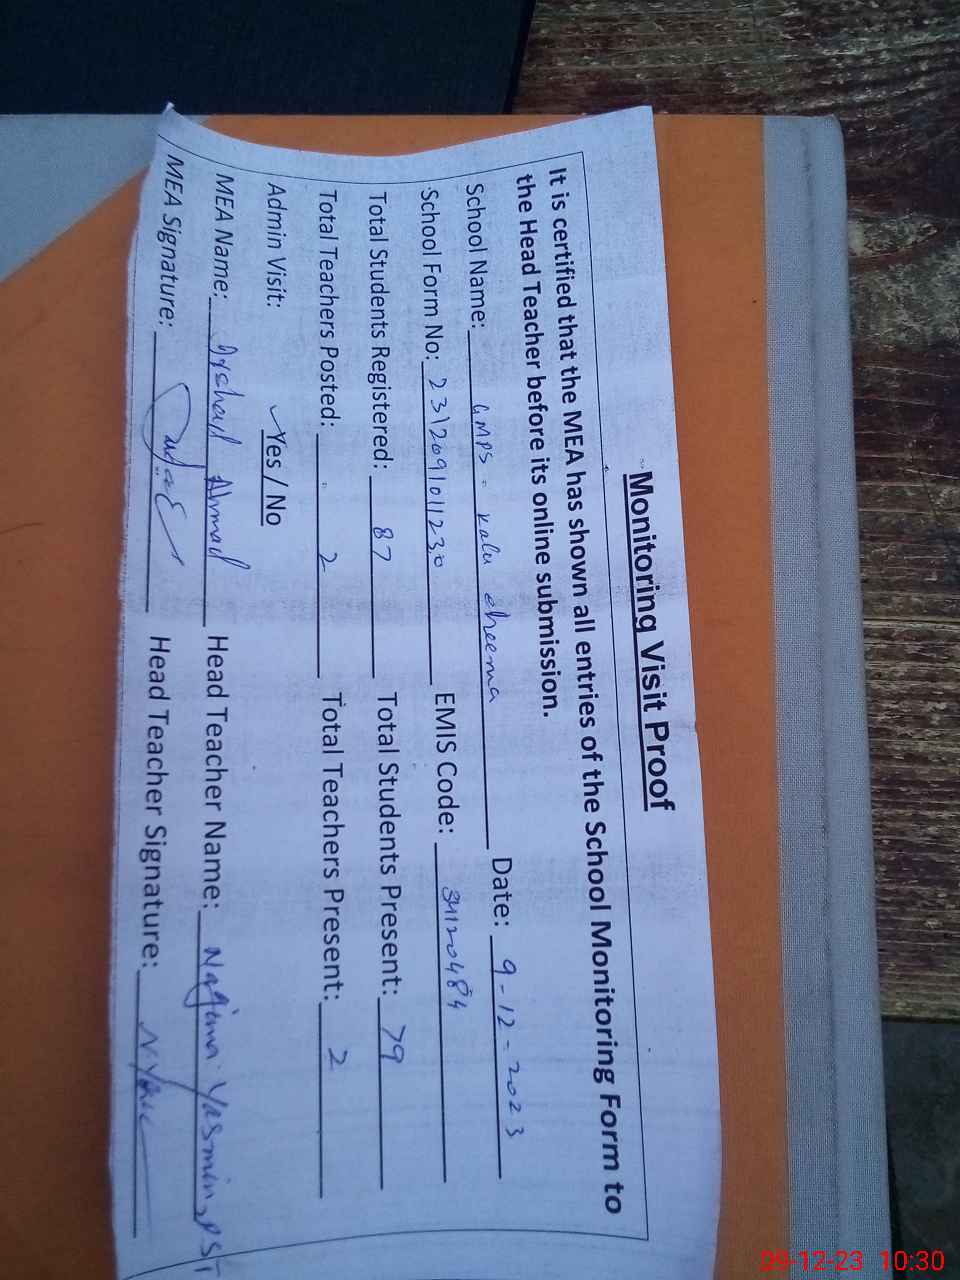 Monitoring Visit Proof
It is certified that the MEA has shown all entries of the School Monitoring Form to
the Head Teacher before its online submission.
School Name: GMPS Kalu cheema Date: 9-12-2023
School Form No: 2312091011230 EMIS Code: 34120484
Total Students Registered: 87 Total Students Present: 79
Total Teachers Posted: 2 Total Teachers Present: 2
Admin Visit: Yes / No
MEA Name: Irshad Ahmad Head Teacher Name: Najma Yasmin, PST
MEA Signature: Head Teacher Signature:
09-12-23 10:30